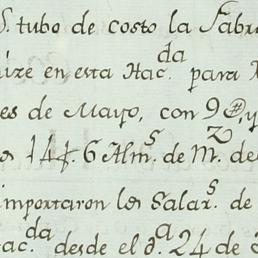 S. tubo de costo la Fabri
ize en esta Hac.da para
es de Mayo, con 9@, y
14 ℔. 6 Alm.s de M.z de
importaron los Salar.s de
ac.da desde el d.a 24 de